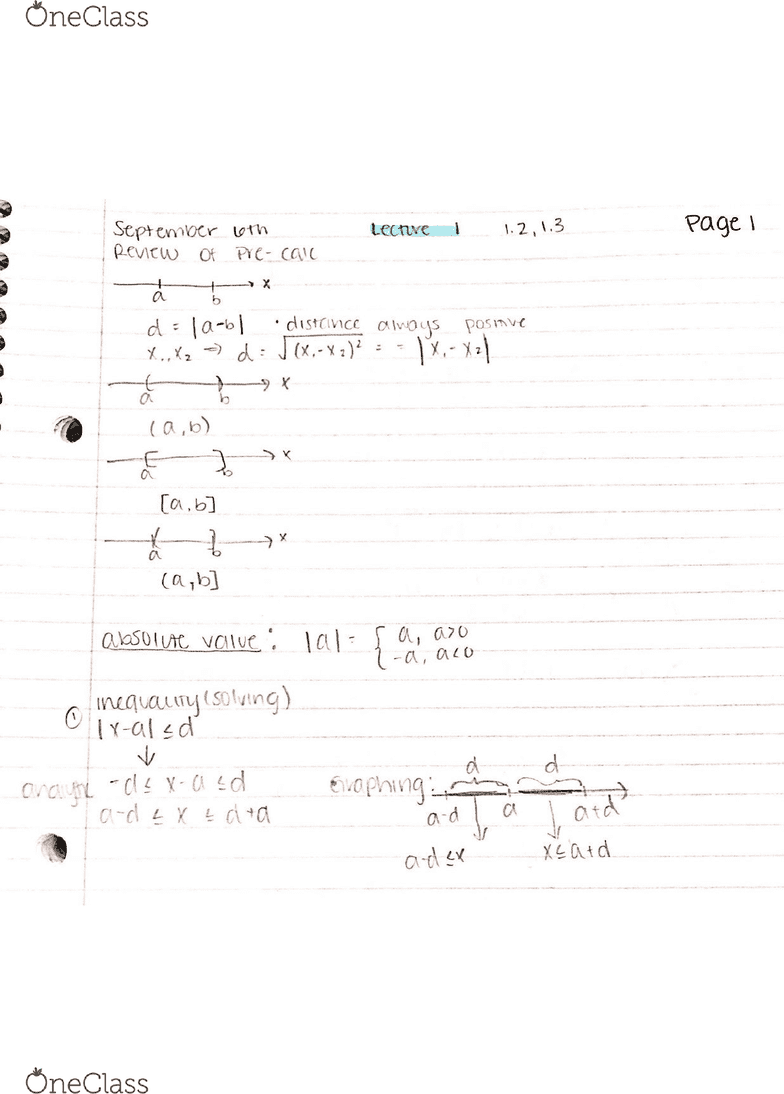 OneClass
September 6th Lecture 1 1.2, 1.3 Page 1
Review of Pre-calc
x
a b
d = |a-b| · distance always positive
x₁, x₂ ⇒ d = √(x₁-x₂)² = = |x₁-x₂|
x
a b
(a,b)
x
a b
[a,b]
x
a b
(a,b]
absolute value: |a| = { a, a>0
-a, a<0
① inequality (solving)
|x-a| ≤ d
↓
d d
-d ≤ x-a ≤ d Graphing:
a-d ≤ x ≤ d+a a-d a a+d
a-d ≤ x x ≤ a+d
OneClass